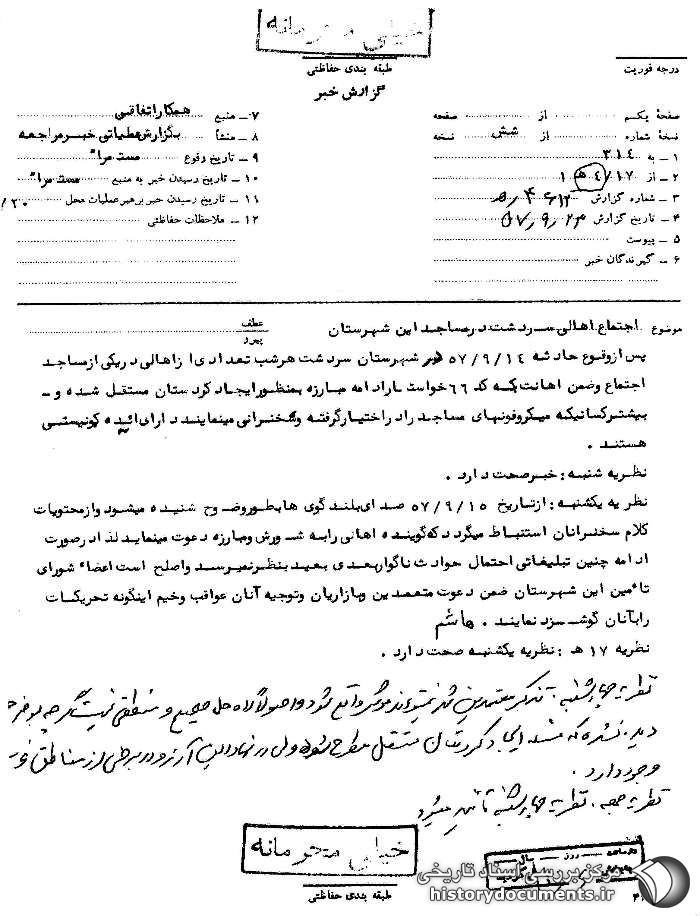 خیلی محرمانه
طبقه بندی حفاظتی
درجه فوریت
گزارش خبر
صفحهٔ یکم ــ از ــ صفحه
نسخهٔ شماره ــ از شش نسخه
۱ ــ به ۳۱٤
۲ ــ از ۱۷/ ٤ هـ ۱
۳ ــ شماره گزارش
٤ ــ تاریخ گزارش ۵۷٫۹٫۲۳
۵ ــ پیوست
۶ ــ گیرندگان خبر
۷ ــ منبع همکار اتفاقی
۸ ــ منشأ بگزارش عملیاتی خبر مراجعه
۹ ــ تاریخ وقوع مستمرا"
۱۰ ــ تاریخ رسیدن خبر به منبع مستمرا"
۱۱ ــ تاریخ رسیدن خبر برهبر عملیات محل ۳۰/
۱۲ ــ ملاحظات حفاظتی
موضوع اجتماع اهالی سردشت در مساجد این شهرستان
عطف
پیرو
پس از وقوع حادثه ۵۷/۹/۱٤ در شهرستان سردشت هرشب تعدادی از اهالی در یکی از مساجد
اجتماع وضمن اهانت بکه کد ۶۶ خواستار ادامه مبارزه بمنظور ایجاد کردستان مستقل شده و ــ
بیشتر کسانیکه میکروفونهای مساجد را در اختیار گرفته وسخنرانی مینمایند دارای ائیده کمونیستی
هستند .
نظریه شنبه : خبر صحت دارد .
نظریه یکشنبه : ازتاریخ ۵۷/۹/۱۵ صدای بلندگوی ها بطور وضوح شنیده میشود واز محتویات
کلام سخنرانان استنباط میگردد که گوینده اهالی را به شورش ومبارزه دعوت مینماید لذا در صورت
ادامه چنین تبلیغاتی احتمال حوادث ناگوار بعدی بعید بنظر نمیرسد واصلح است اعضاء شورای
تأمین این شهرستان ضمن دعوت متعمدین وبازاریان وتوجیه آنان عواقب وخیم اینگونه تحریکات
را بآنان گوشزد نمایند . هاشم
نظریه ۱۷ هـ : نظریه یکشنبه صحت دارد .
نظریه چهارشنبه . تذکر معتمدین شهر نمیتواند موثر واقع شود و اصولا راه حل صحیح و منطقی نیست گرچه
دیده نشده که مسئله ایجاد کردستان مستقل مطرح شود ولی در نهاد این آرزو در برخی از مناطق
وجود دارد .
نظریه جمعه . نظریه چهارشنبه تأیید میگردد
خیلی محرمانه
طبقه بندی حفاظتی
مرکز بررسی اسناد تاریخی
historydocuments.ir